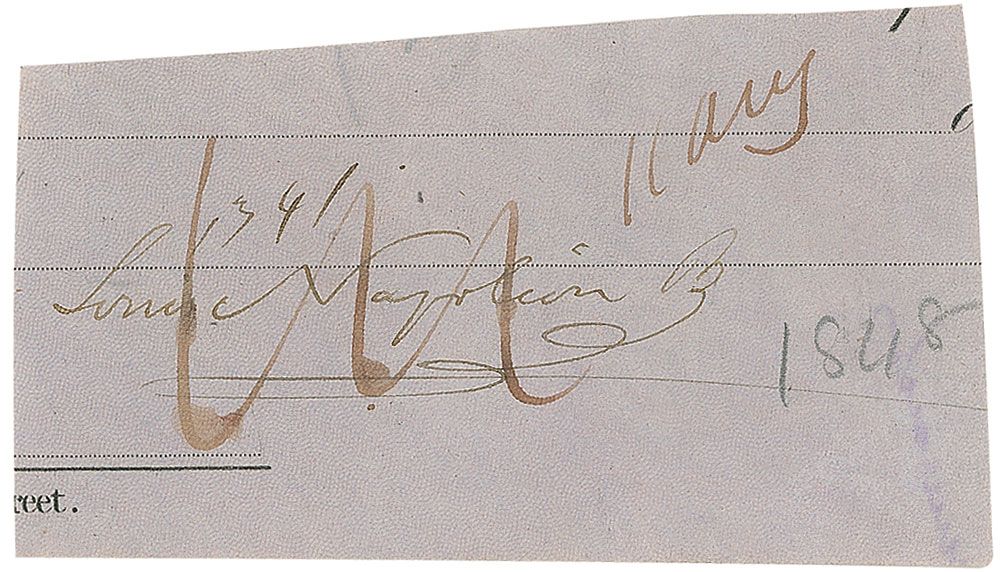 341
Louis Napoleon B
1848
reet.